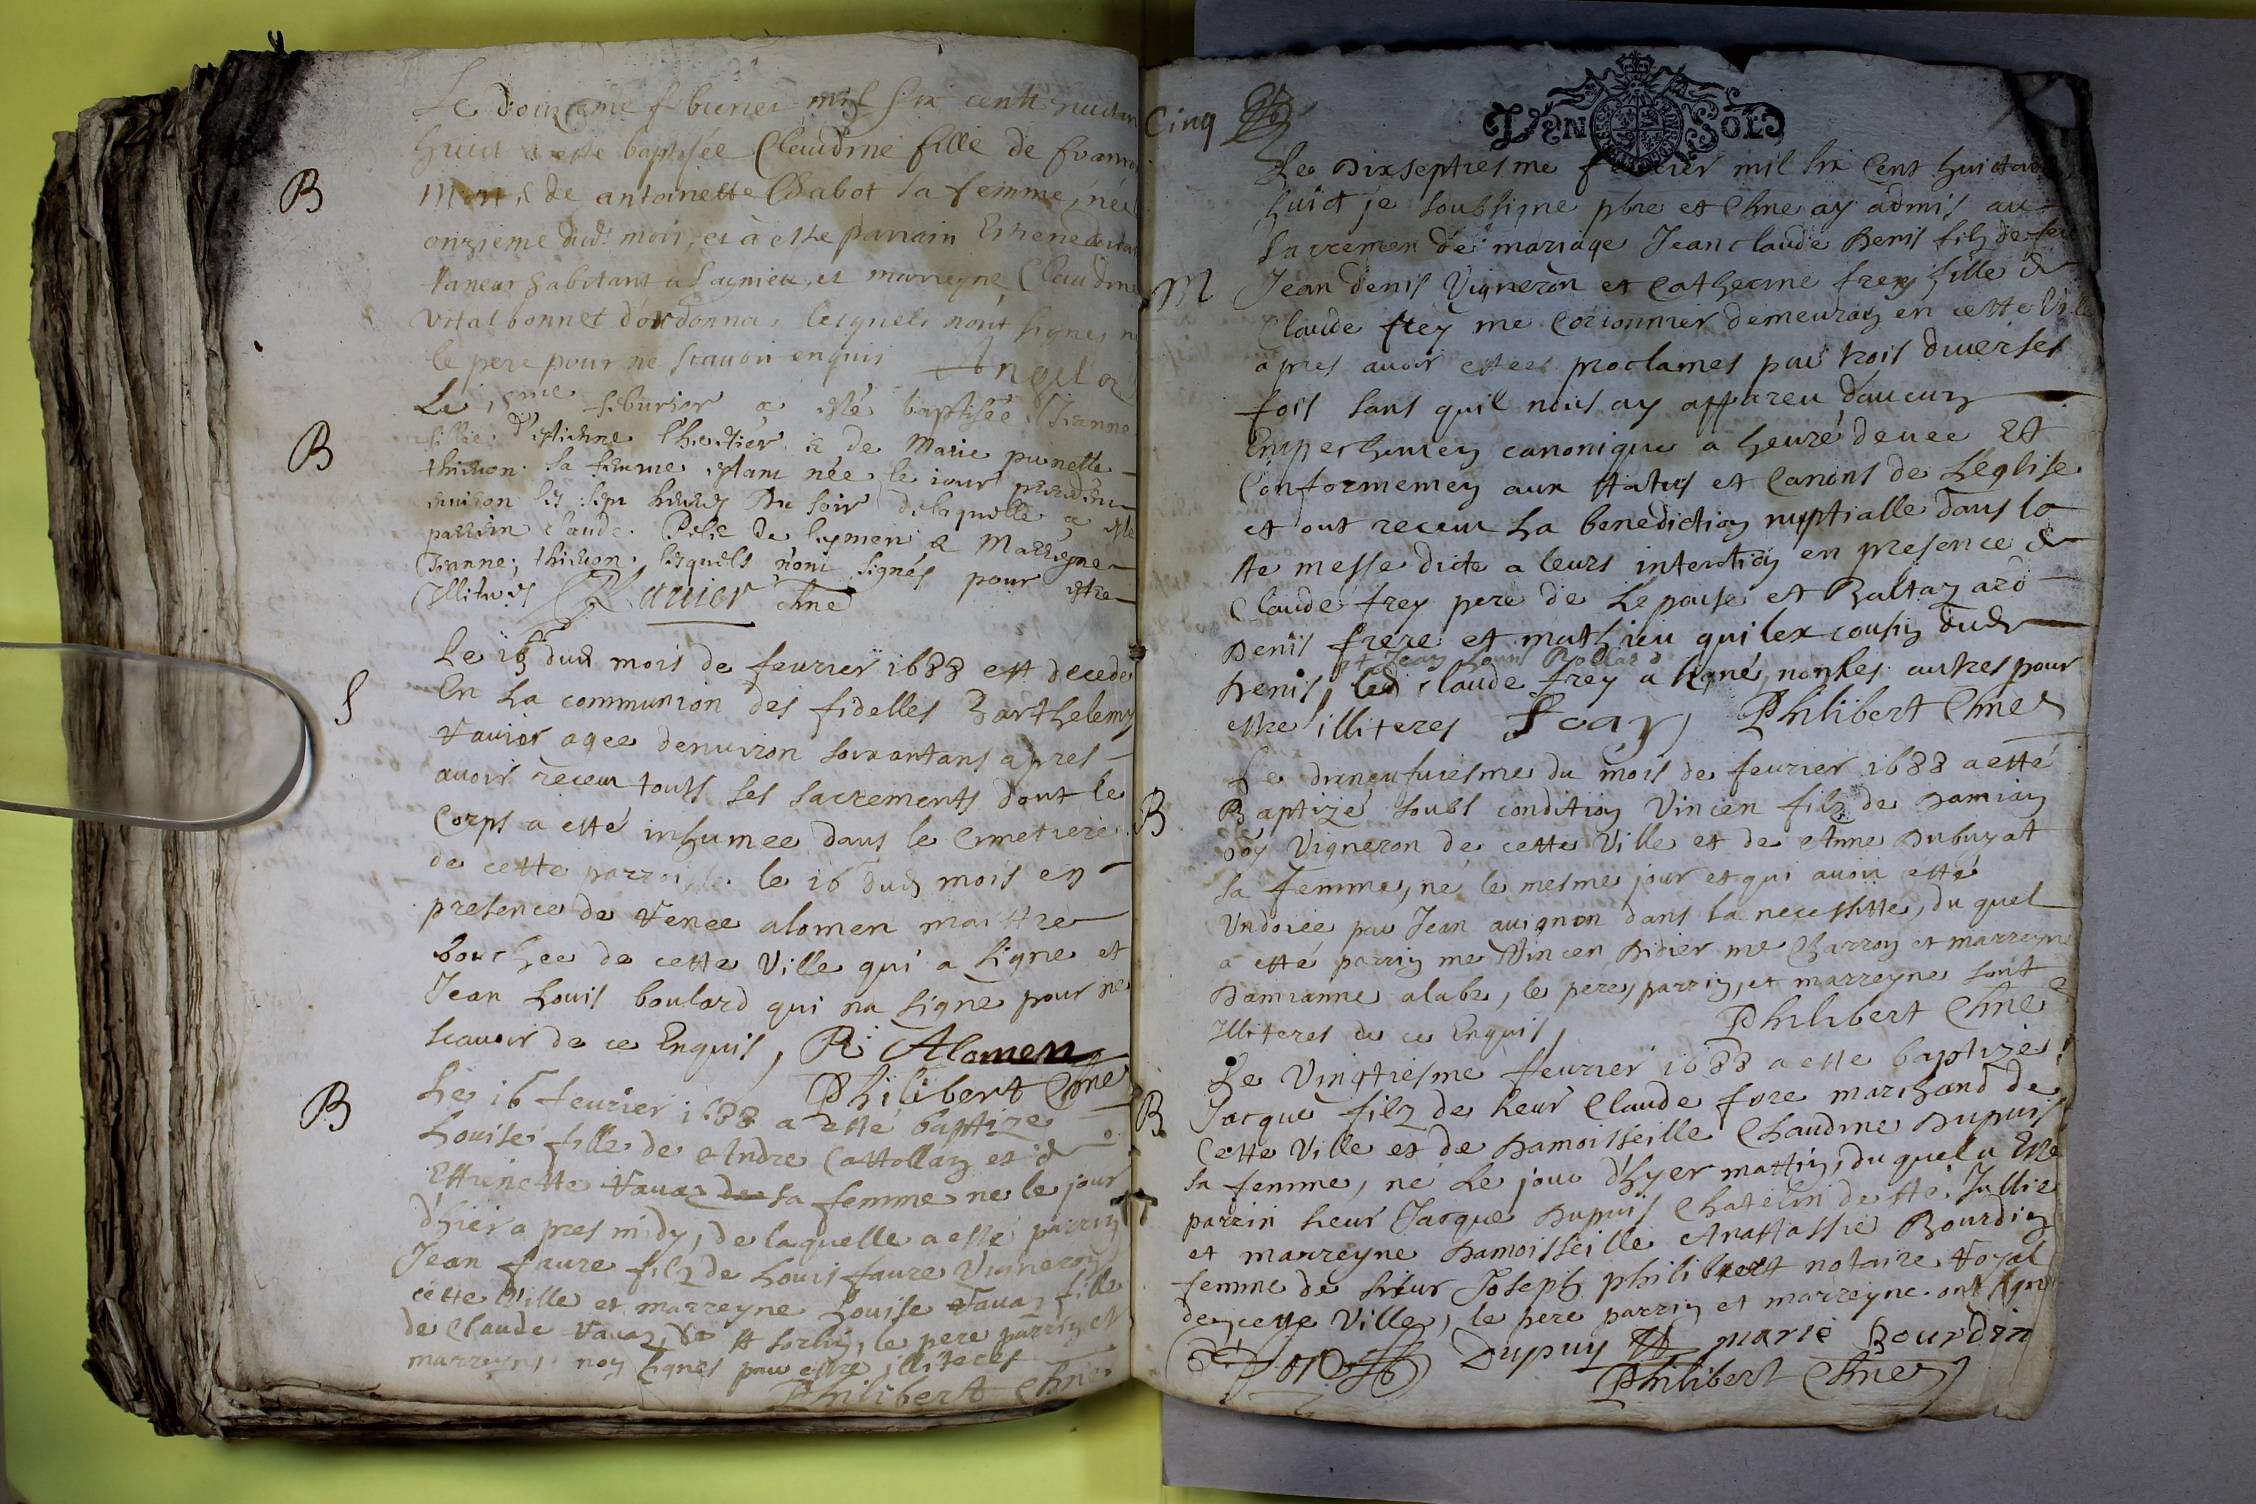 Le douzieme febvrier mil six cents huictan
huict a esté baptisée Claudine fille de francois
& de antoinette Chabot sa femme, née l
onzieme dud. mois, et à este parrain
taneur habitant a Lagnieu et marreyne Claudine
vital bonnet d'ordonna, lesquels n'ont signes n
le pere pour ne scavoir enquis
B
Le 15me feburier a esté baptisée Jeanne
fillie d'estienne & de Marie punette
thieuon sa femme estant née le iour precedens
enuiron les sept heures Du soir de laquelle a esté
parrein Claude de leymen & Marreyne
Jeanne thieuon, lesquels n'ont signés pour estre
Illiteres Ravier Chne
B
Le 16 dud mois de feurier 1688 est decede
En La communion des fidelles Barthelemy
Vauier agee denuiron soixantans apres
auoir receu touts ses sacrements dont le
Corps a esté inhumee dans le Cimetiere
de cette parroisse le 16 dud mois en
presence de Renee alomen maittre
bouchee de cette Ville qui a signe et
Jean Louis boulard qui na signe pour ne
scauoir de ce Enquis, R. Alomen
Philibert Chne
S
Le 16 feurier 1688 a esté baptize
Louise fille de Andre Cattollaz et d
Ettiennette Vauaz de sa femme ne le jour
d'hier apres midy, de laquelle a esté parrin
Jean faure filz de Louis faure Vigneron
cette Ville et marreyne Louise Vauaz fille
de Claude Vauaz, de St sorlin, le pere parrin et
marreyne non signes pour estre illiteres
Philibert Chne
B
Cinq
VN SOL
Le Dixseptiesme feurier mil six Cent huictan
huict je soubsigne pbre et Chne ay admis au
Sacremen de mariage Jean claude Denis filz de feu
Jean denis Vigneron et Catherine frey fille d
Claude frey me Cordonnier demeuran en cette Ville
apres auoir estees proclames par trois diuerses
fois sans quil nous ay appareu d'aucun
Empechemen canonique a heure deuee Et
Conformemen aux statuts et Canons de L'eglise
et ont receu La benediction nuptialle dans la
ste messe dicte a leurs intention en presence d
Claude frey pere de Lepouse et Baltazard
Denis frere et mathieu quilex cousin dud
et Jean Louis Bollard
Denis, led Claude frey a signé, non les autres pour
estre illiteres Frey Philibert Chne
M
Le dixneufuiesme du mois de feurier 1688 a esté
Baptizé soubs condition Vincen filz de Damian
boy Vigneron de cette Ville et de Anne Dubuyat
sa femme, né le mesme jour et qui auoit esté
Undoiee par Jean auignon dans la necessitte, du quel
a esté parrin me Vincen Didier me Charron et marreyne
Damianne alabe, le pere, parrin, et marreyne sont
Illiteres de ce Enquis, Philibert Chne
B
Le Vingtiesme feurier 1688 a este baptize
Jacque filz de sieur Claude fore marchand de
Cette Ville et de Damoisseille Claudine Dupuis
sa femme, né Le jour d'hyer mattin, du quel a Este
parrin sieur Jacque Dupuis Chatelin de ste Jullie
et marreyne Damoisseille Anattassie Bourdin
femme de sieur Joseph philibert notaire royal
de cette Ville, le pere parrin et marreyne ont signe
Dupuy marie Bourdin
Philibert Chne
B